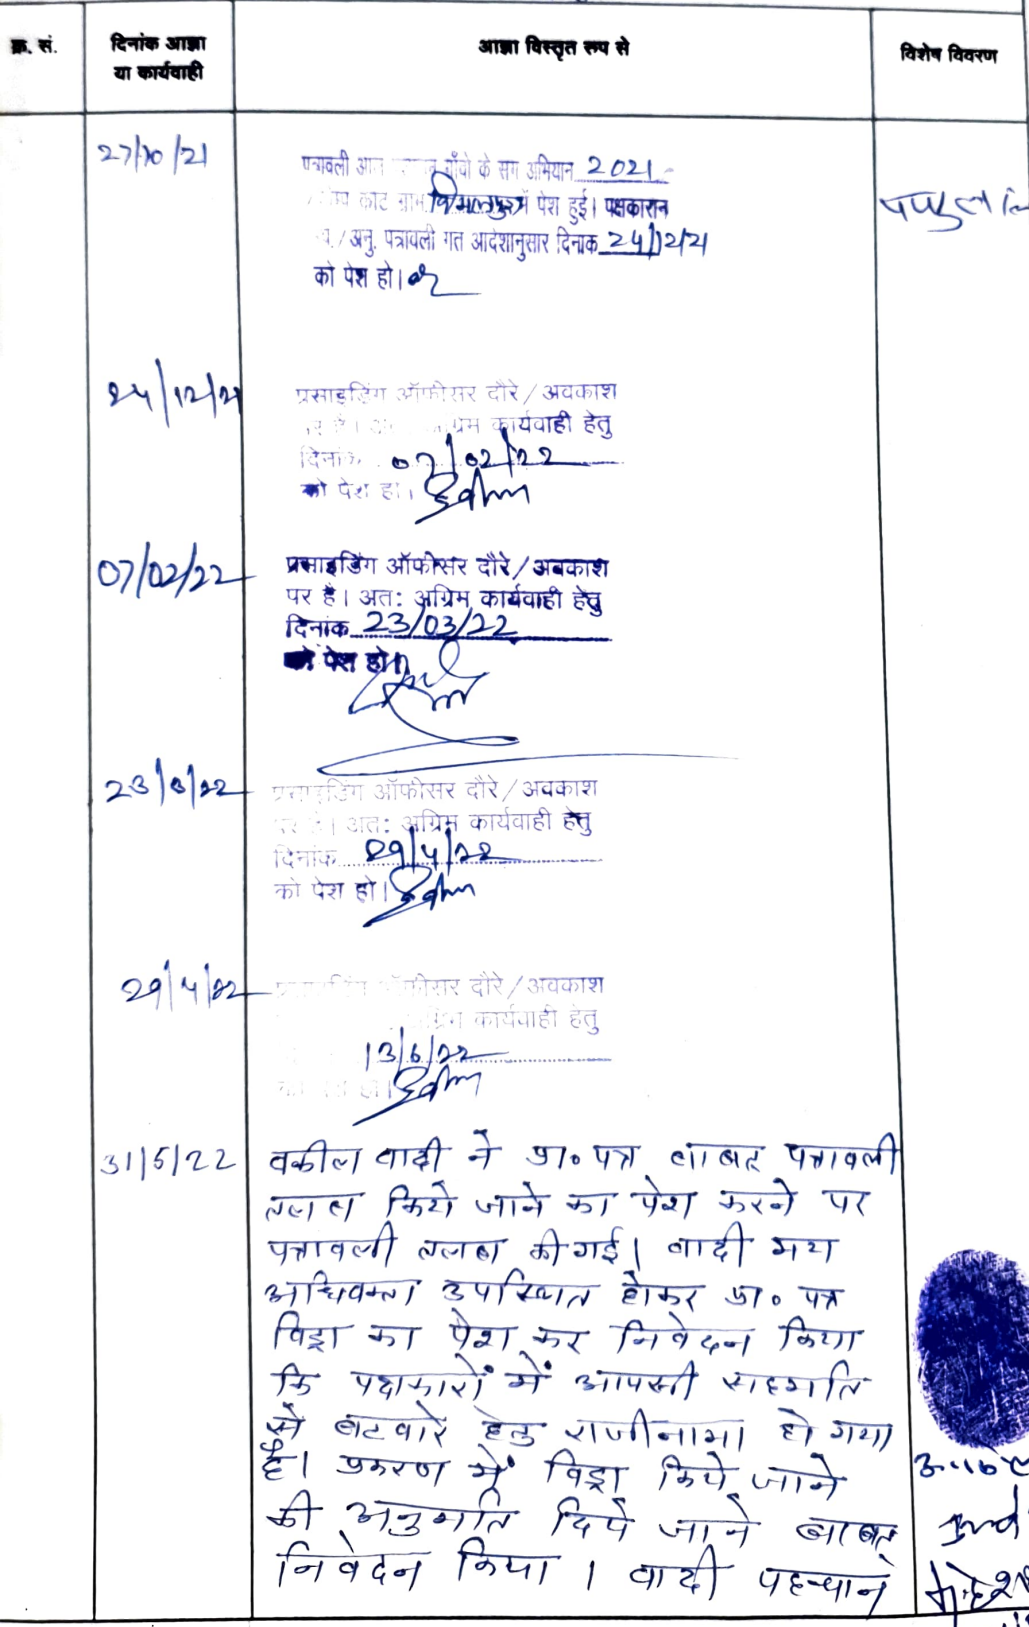 क्र. सं.
दिनांक आज्ञा
या कार्यवाही
आज्ञा विस्तृत रूप से
विशेष विवरण
27/10/21
पत्रावली गाँवो के संग अभियान 2021
कोर्ट ग्राम में पेश हुई। पक्षकारान
/अनु. पत्रावली गत आदेशानुसार दिनांक 24/12/21
को पेश हो।
24/12/21
प्रसाइडिंग ऑफीसर दौरे/अवकाश
पर है। अतः अग्रिम कार्यवाही हेतु
दिनांक 07/02/22
को पेश हो।
07/02/22
प्रसाइडिंग ऑफीसर दौरे/अवकाश
पर है। अतः अग्रिम कार्यवाही हेतु
दिनांक 23/03/22
को पेश हो।
23/3/22
प्रसाइडिंग ऑफीसर दौरे/अवकाश
पर है। अतः अग्रिम कार्यवाही हेतु
दिनांक 29/4/22
को पेश हो।
29/4/22
प्रसाइडिंग ऑफीसर दौरे/अवकाश
अग्रिम कार्यवाही हेतु
13/6/22
को पेश हो।
31/5/22
वकील वादी ने प्रा० पत्र बाबत पत्रावली
तलब किये जाने का पेश करने पर
पत्रावली तलब की गई। वादी मय
अधिवक्ता उपस्थित होकर प्रा० पत्र
विड्रा का पेश कर निवेदन किया
कि पक्षकारों में आपसी सहमति
से बटवारे हेतु राजीनामा हो गया
है। प्रकरण में विड्रा किये जाने
की अनुमति दिये जाने बाबत
निवेदन किया। वादी पहचान